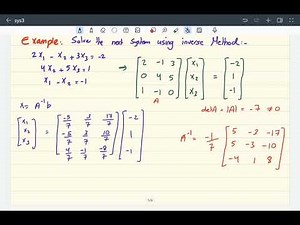 sys3
Example:- Solve the next system using inverse Method:-
2x₁ - x₂ + 3x₃ = -2
4x₂ + 5x₃ = 1
x₁ - x₂ = -1
⇒ [2 -1 3; 0 4 5; 1 -1 0] [x₁; x₂; x₃] = [-2; 1; -1]
A
det A = |A| = -7 ≠ 0
x = A⁻¹b
[x₁; x₂; x₃] =
[-2; 1; -1]
A⁻¹ = -1/7 [5 -3 -17; 5 -3 -10; -4 1 8]